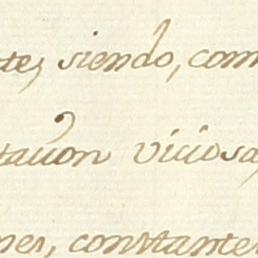 tes siendo, com
tación viciosa,
nes, constantes